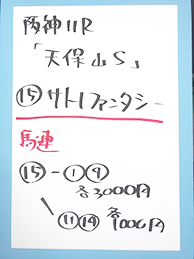 阪神11R
「天保山S」
⑮サトノファンタシー
馬連
⑮-①⑨
各3000円
\⑪⑭各1000円